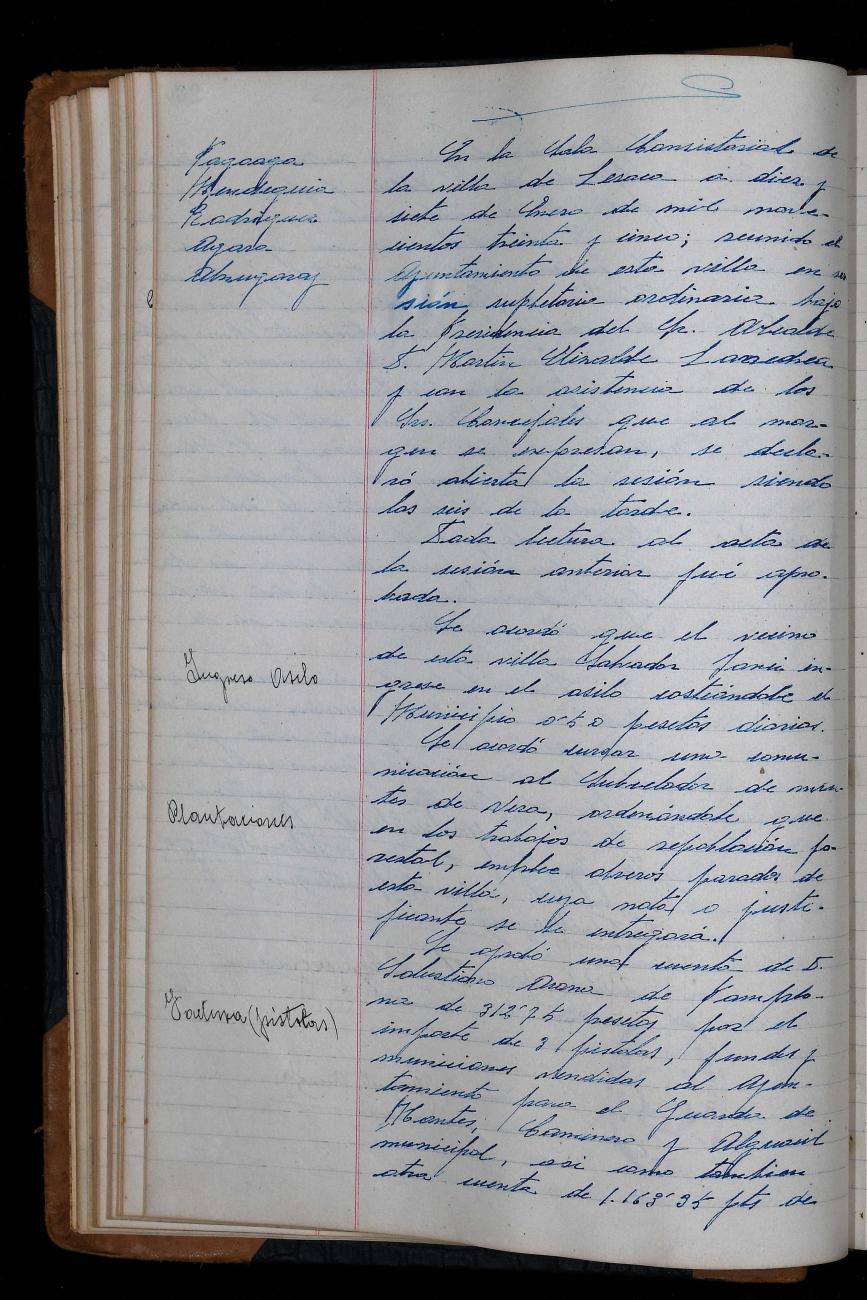 Endriguez
Agara
En la Sala Consistorial de
la villa de Lesaca a diez y
siete de Enero de mil nove-
cientos treinta y cinco; reunido el
Ayuntamiento de esta villa en se
sión supletoria ordinaria bajo
la Presidencia del Sr. Alcalde
D. Martin Elizalde Larredrea
y con la asistencia de los
Srs. Concejales que al mar-
gen se expresan, se decla-
ró abierta la sesión siendo
las seis de la tarde.
Dada lectura al acta de
la sesión anterior fué apro-
bada.
Ingreso Asilo
Se acordó que el vecino
de esta villa Salvador in-
grese en el asilo costeándole el
Municipio 0'50 pesetas diarias.
Plantaciones
Se acordó cursar una comu-
nicación al Subcelador de mon-
tes de Vera, ordenándole que
en los trabajos de repoblación fo-
restal, emplee obreros parados de
esta villa, cuya nota o justi-
ficante se le entregará.
Factura (pistolas)
Se aprobó una cuenta de D.
Salustiano Arana de Pamplo-
na de 312'75 pesetas por el
importe de 3 pistolas, fundas y
municiones vendidas al Ayun-
tamiento para el Guarda de
Montes, Caminero y Alguacil
municipal, asi como tambien
otra cuenta de 1.163'35 pts de